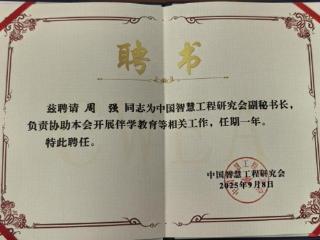 聘书
兹聘请 周 强 同志为中国智慧工程研究会副秘书长，
负责协助本会开展伴学教育等相关工作，任期一年。
特此聘任。
中国智慧工程研究会
2025年9月8日